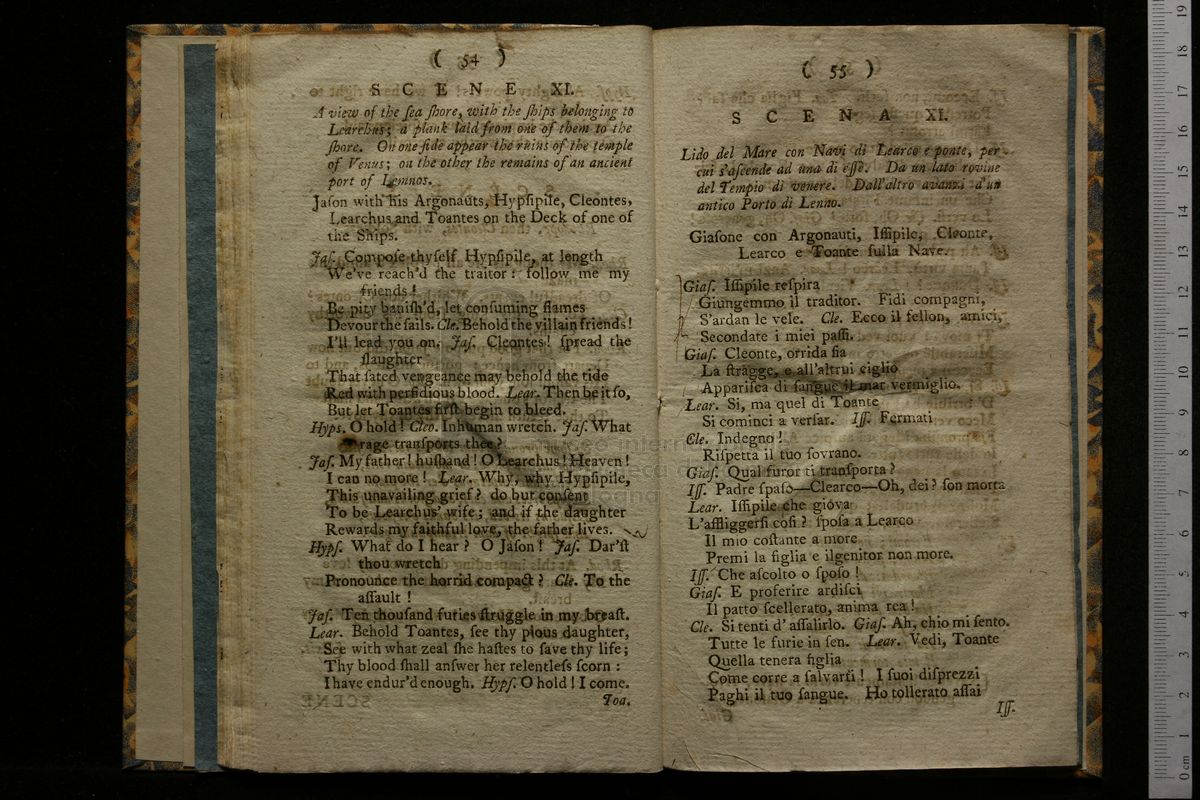 ( 54 )
SCENE XI.
A view of the ſea ſhore, with the ſhips belonging to
Learchus; a plank laid from one of them to the
ſhore. On one ſide appear the ruins of the temple
of Venus; on the other the remains of an ancient
port of Lemnos.
Jaſon with his Argonauts, Hypſipile, Cleontes,
Learchus and Toantes on the Deck of one of
the Ships.
Jaſ. Compoſe thyſelf Hypſipile, at length
We've reach'd the traitor: follow me my
friends!
Be pity baniſh'd, let conſuming flames
Devour the ſails. Cle. Behold the villain friends!
I'll lead you on. Jaſ. Cleontes! ſpread the
ſlaughter
That ſated vengeance may behold the tide
Red with perfidious blood. Lear. Then be it ſo,
But let Toantes firſt begin to bleed.
Hyps. O hold! Cleo. Inhuman wretch. Jaſ. What
rage tranſports thee?
Jaſ. My father! huſband! O Learchus! Heaven!
I can no more! Lear. Why, why Hypſipile,
This unavailing grief? do but conſent
To be Learchus' wife; and if the daughter
Rewards my faithful love, the father lives.
Hypſ. What do I hear? O Jaſon! Jaſ. Dar'ſt
thou wretch
Pronounce the horrid compact? Cle. To the
aſſault!
Jaſ. Ten thouſand furies ſtruggle in my breaſt.
Lear. Behold Toantes, ſee thy pious daughter,
See with what zeal ſhe haſtes to ſave thy life;
Thy blood ſhall anſwer her relentleſs ſcorn:
I have endur'd enough. Hypſ. O hold! I come.
Toa.
( 55 )
SCENA XI.
Lido del Mare con Navi di Learco e ponte, per
cui s'aſcende ad una di eſſe. Da un lato rovine
del Tempio di venere. Dall'altro avanzi d'un
antico Porto di Lenno.
Giaſone con Argonauti, Iſſipile, Cleonte,
Learco e Toante ſulla Nave.
Giaſ. Iſſipile reſpira
Giungemmo il traditor. Fidi compagni,
S'ardan le vele. Cle. Ecco il fellon, amici,
Secondate i miei paſſi.
Giaſ. Cleonte, orrida ſia
La ſtragge, e all'altrui ciglio
Appariſca di ſangue il mar vermiglio.
Lear. Si, ma quel di Toante
Si cominci a verſar. Iſſ. Fermati
Cle. Indegno!
Riſpetta il tuo ſovrano.
Giaſ. Qual furor ti tranſporta?
Iſſ. Padre ſpaſo—Clearco—Oh, dei? ſon morta
Lear. Iſſipile che giova
L'affliggerſi coſi? ſpoſa a Learco
Il mio coſtante amore
Premi la figlia e ilgenitor non more.
Iſſ. Che aſcolto o ſpoſo!
Giaſ. E proferire ardiſci
Il patto ſcellerato, anima rea!
Cle. Si tenti d' aſſalirlo. Giaſ. Ah, chio mi ſento.
Tutte le furie in ſen. Lear. Vedi, Toante
Quella tenera figlia
Come corre a ſalvarti! I ſuoi diſprezzi
Paghi il tuo ſangue. Ho tollerato aſſai
Iſſ.
0 cm 1 2 3 4 5 6 7 8 9 10 11 12 13 14 15 16 17 18 19